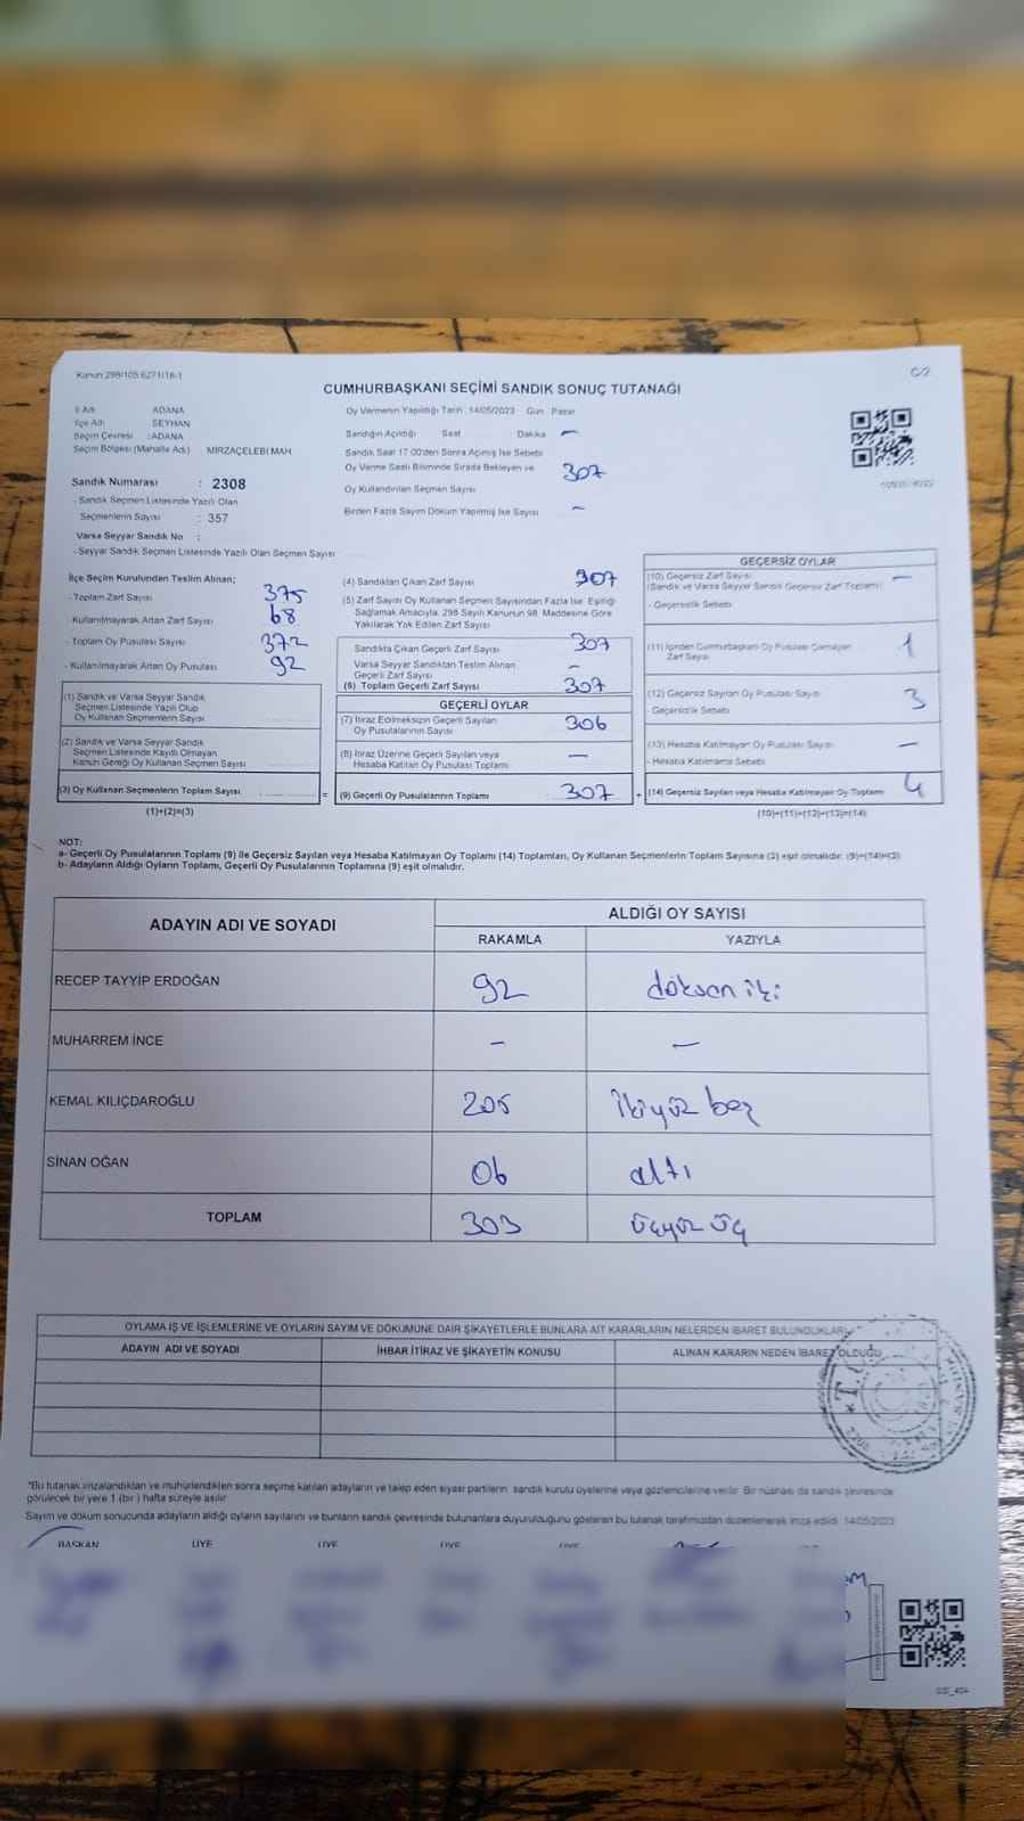 Kanun 298/105 6271/18-1
CUMHURBAŞKANI SEÇİMİ SANDIK SONUÇ TUTANAĞI
İl Adı ADANA
İlçe Adı SEYHAN
Seçim Çevresi : ADANA
Seçim Bölgesi (Mahalle Adı) MİRZAÇELEBİ MAH
Sandık Numarası : 2308
- Sandık Seçmen Listesinde Yazılı Olan
Seçmenlerin Sayısı : 357
Varsa Seyyar Sandık No :
- Seyyar Sandık Seçmen Listesinde Yazılı Olan Seçmen Sayısı
Oy Vermenin Yapıldığı Tarih 14/05/2023 Gün Pazar
Sandığın Açıldığı Saat Dakika –
Sandık Saat 17:00'den Sonra Açılmış İse Sebebi
Oy Verme Saati Bitiminde Sırada Bekleyen ve 307
Oy Kullandırılan Seçmen Sayısı
Birden Fazla Sayım Döküm Yapılmış İse Sayısı –
İlçe Seçim Kurulundan Teslim Alınan;
- Toplam Zarf Sayısı 375
Kullanılmayarak Artan Zarf Sayısı 68
- Toplam Oy Pusulası Sayısı 372
- Kullanılmayarak Artan Oy Pusulası 92
(1) Sandık ve Varsa Seyyar Sandık
Seçmen Listesinde Yazılı Olup
Oy Kullanan Seçmenlerin Sayısı
(2) Sandık ve Varsa Seyyar Sandık
Seçmen Listesinde Kayıtlı Olmayan
Kanun Gereği Oy Kullanan Seçmen Sayısı
(3) Oy Kullanan Seçmenlerin Toplam Sayısı =
(1)+(2)=(3)
(4) Sandıktan Çıkan Zarf Sayısı 307
(5) Zarf Sayısı Oy Kullanan Seçmen Sayısından Fazla İse, Eşitliği
Sağlamak Amacıyla, 298 Sayılı Kanunun 98. Maddesine Göre
Yakılarak Yok Edilen Zarf Sayısı
Sandıkta Çıkan Geçerli Zarf Sayısı 307
Varsa Seyyar Sandıktan Teslim Alınan
Geçerli Zarf Sayısı –
(6) Toplam Geçerli Zarf Sayısı 307
GEÇERLİ OYLAR
(7) İtiraz Edilmeksizin Geçerli Sayılan
Oy Pusulalarının Sayısı 306
(8) İtiraz Üzerine Geçerli Sayılan veya
Hesaba Katılan Oy Pusulası Toplamı –
(9) Geçerli Oy Pusulalarının Toplamı 307 +
GEÇERSİZ OYLAR
(10) Geçersiz Zarf Sayısı –
(Sandık ve Varsa Seyyar Sandık Geçersiz Zarf Toplamı)
- Geçersizlik Sebebi
(11) İçinden Cumhurbaşkanı Oy Pusulası Çıkmayan
Zarf Sayısı 1
(12) Geçersiz Sayılan Oy Pusulası Sayısı 3
- Geçersizlik Sebebi
(13) Hesaba Katılmayan Oy Pusulası Sayısı –
- Hesaba Katılmama Sebebi
(14) Geçersiz Sayılan veya Hesaba Katılmayan Oy Toplamı 4
(10)+(11)+(12)+(13)=(14)
NOT:
a- Geçerli Oy Pusulalarının Toplamı (9) ile Geçersiz Sayılan veya Hesaba Katılmayan Oy Toplamı (14) Toplamları, Oy Kullanan Seçmenlerin Toplam Sayısına (3) eşit olmalıdır. (9)+(14)=(3)
b- Adayların Aldığı Oyların Toplamı, Geçerli Oy Pusulalarının Toplamına (9) eşit olmalıdır.
ADAYIN ADI VE SOYADI ALDIĞI OY SAYISI
RAKAMLA YAZIYLA
RECEP TAYYİP ERDOĞAN 92 doksan iki
MUHARREM İNCE – –
KEMAL KILIÇDAROĞLU 205 ikiyüz beş
SİNAN OĞAN 06 altı
TOPLAM 303 üçyüz üç
OYLAMA İŞ VE İŞLEMLERİNE VE OYLARIN SAYIM VE DÖKÜMÜNE DAİR ŞİKAYETLERLE BUNLARA AİT KARARLARIN NELERDEN İBARET BULUNDUKLARI
ADAYIN ADI VE SOYADI İHBAR İTİRAZ VE ŞİKAYETİN KONUSU ALINAN KARARIN NEDEN İBARET OLDUĞU
T.C.
*Bu tutanak imzalandıktan ve mühürlendikten sonra seçime katılan adayların ve talep eden siyasi partilerin sandık kurulu üyelerine veya gözlemcilerine verilir. Bir nüshası da sandık çevresinde
görülecek bir yere 1 (bir) hafta süreyle asılır
Sayım ve döküm sonucunda adayların aldığı oyların sayılarını ve bunların sandık çevresinde bulunanlara duyurulduğunu gösteren bu tutanak tarafımızdan düzenlenerek imza edildi. 14/05/2023
BAŞKAN ÜYE ÜYE ÜYE ÜYE